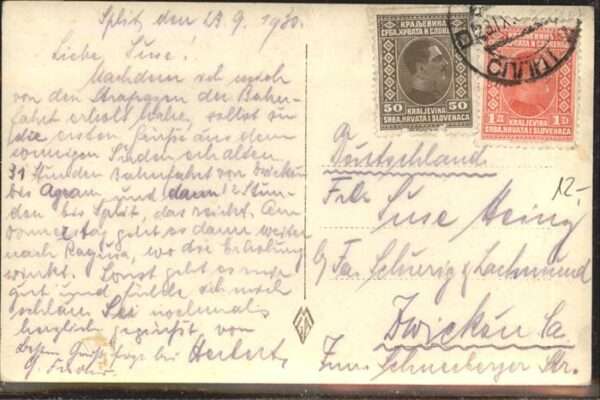 Split, den 23.9.1930.
Liebe Suse!
Nachdem ich mich
von den Strapazen der Bahn-
fahrt erholt habe, sollst du
die ersten Grüße aus dem
sonnigen Süden erhalten.
31 Stunden Bahnfahrt von Zwickau
bis Agram, und dann 12 Stun-
den bis Split, das reicht. Am
Donnerstag geht es dann weiter
nach Ragusa, wo die Erholung
winkt. Sonst geht es mir
gut und
Sei nochmals
herzlich gegrüßt von
Herbert
КРАЉЕВИНА
СРБА, ХРВАТА И СЛОВЕНАЦА
50 50
KRALJEVINA
SRBA, HRVATA I SLOVENACA
КРАЉЕВИНА
СРБА, ХРВАТА И СЛОВЕНАЦА
1 1
KRALJEVINA
SRBA, HRVATA I SLOVENACA
Deutschland
Frl.
Suse Heinz
12.-
Fa. Schurig & Lachmund
Zwickau Sa.
Schneeberger Str.